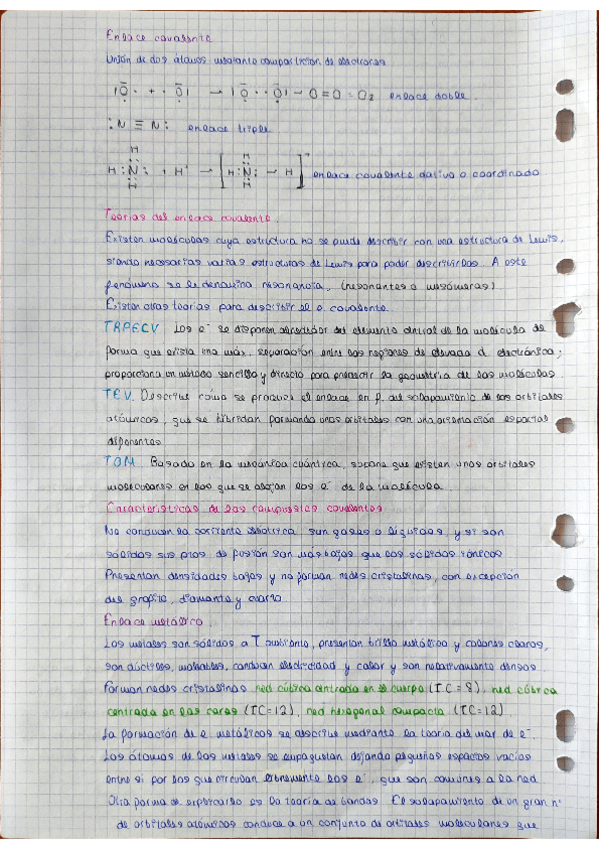 Enlace covalente
Unión de dos átomos mediante compartición de electrones
|O· + ·O| → |O··O| - O=O - O2 enlace doble.
:N≡N: enlace triple
H
H:N: + H+ → [H:N: → H]+ enlace covalente dativo o coordinado
H
Teorías del enlace covalente.
Existen moléculas cuya estructura no se puede describir con una estructura de Lewis,
siendo necesarias varias estructuras de Lewis para poder describirlas. A este
fenómeno se le denomina resonancia. (resonantes o mesómeras)
Existen otras teorías para describir el e. covalente.
TRPECV Los e- se disponen alrededor del elemento central de la molécula de
forma que exista una máx. separación entre las regiones de elevada d. electrónica;
proporciona un método sencillo y directo para predecir la geometría de las moléculas.
TEV. Describe cómo se produce el enlace en f. del solapamiento de los orbitales
atómicos, que se hibridan formando unos orbitales con una orientación espacial
diferentes
TOM. Basado en la mecánica cuántica, supone que existen unos orbitales
moleculares en los que se alojan los e- de la molécula.
Características de los compuestos covalentes
No conducen la corriente eléctrica, son gases o líquidos, y si son
sólidos sus ptos de fusión son más bajos que los sólidos iónicos
Presentan densidades bajas y no forman redes cristalinas, con excepción
del grafito, diamante y cuarzo
Enlace metálico.
Los metales son sólidos a T ambiente, presentan brillo metálico y colores claros,
son dúctiles, maleables, conducen electricidad y calor y son relativamente densos.
Forman redes cristalinas red cúbica centrada en el cuerpo (IC=8), red cúbica
centrada en las caras (IC=12), red hexagonal compacta (IC=12)
La formación de e. metálicos se describe mediante la teoría del mar de e-.
Los átomos de los metales se empaquetan dejando pequeños espacios vacíos
entre sí por los que circulan libremente los e-, que son comunes a la red.
Otra forma de explicarlo es la teoría de bandas. El solapamiento de un gran nº
de orbitales atómicos conduce a un conjunto de orbitales moleculares que